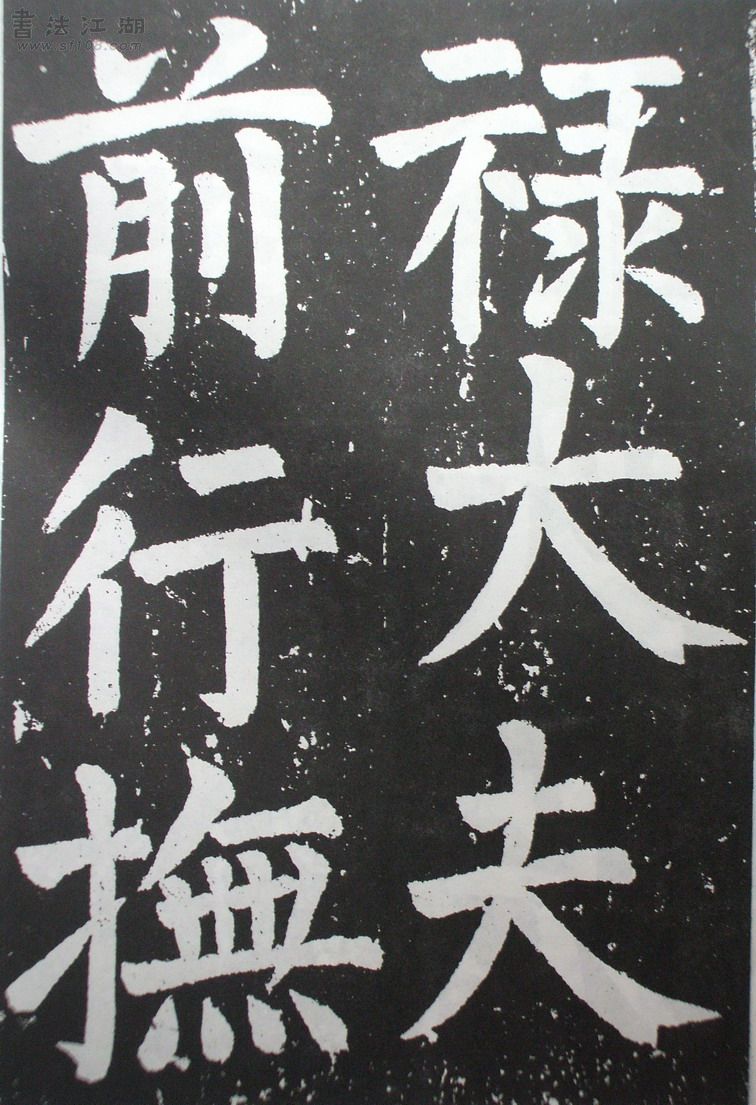 禄大夫
前行撫
書法江湖
www.sf108.com